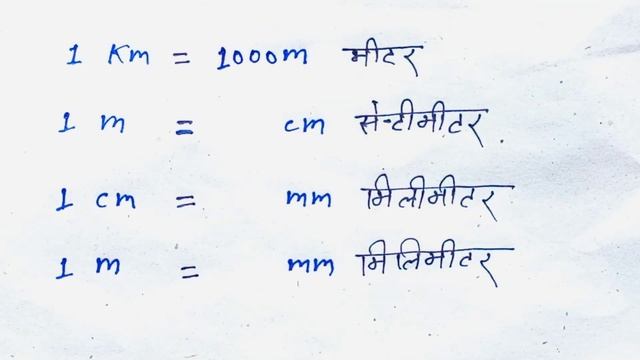 1 Km = 1000m मीटर
1 m = cm सेन्टीमीटर
1 cm = mm मिलीमीटर
1 m = mm मिलिमीटर